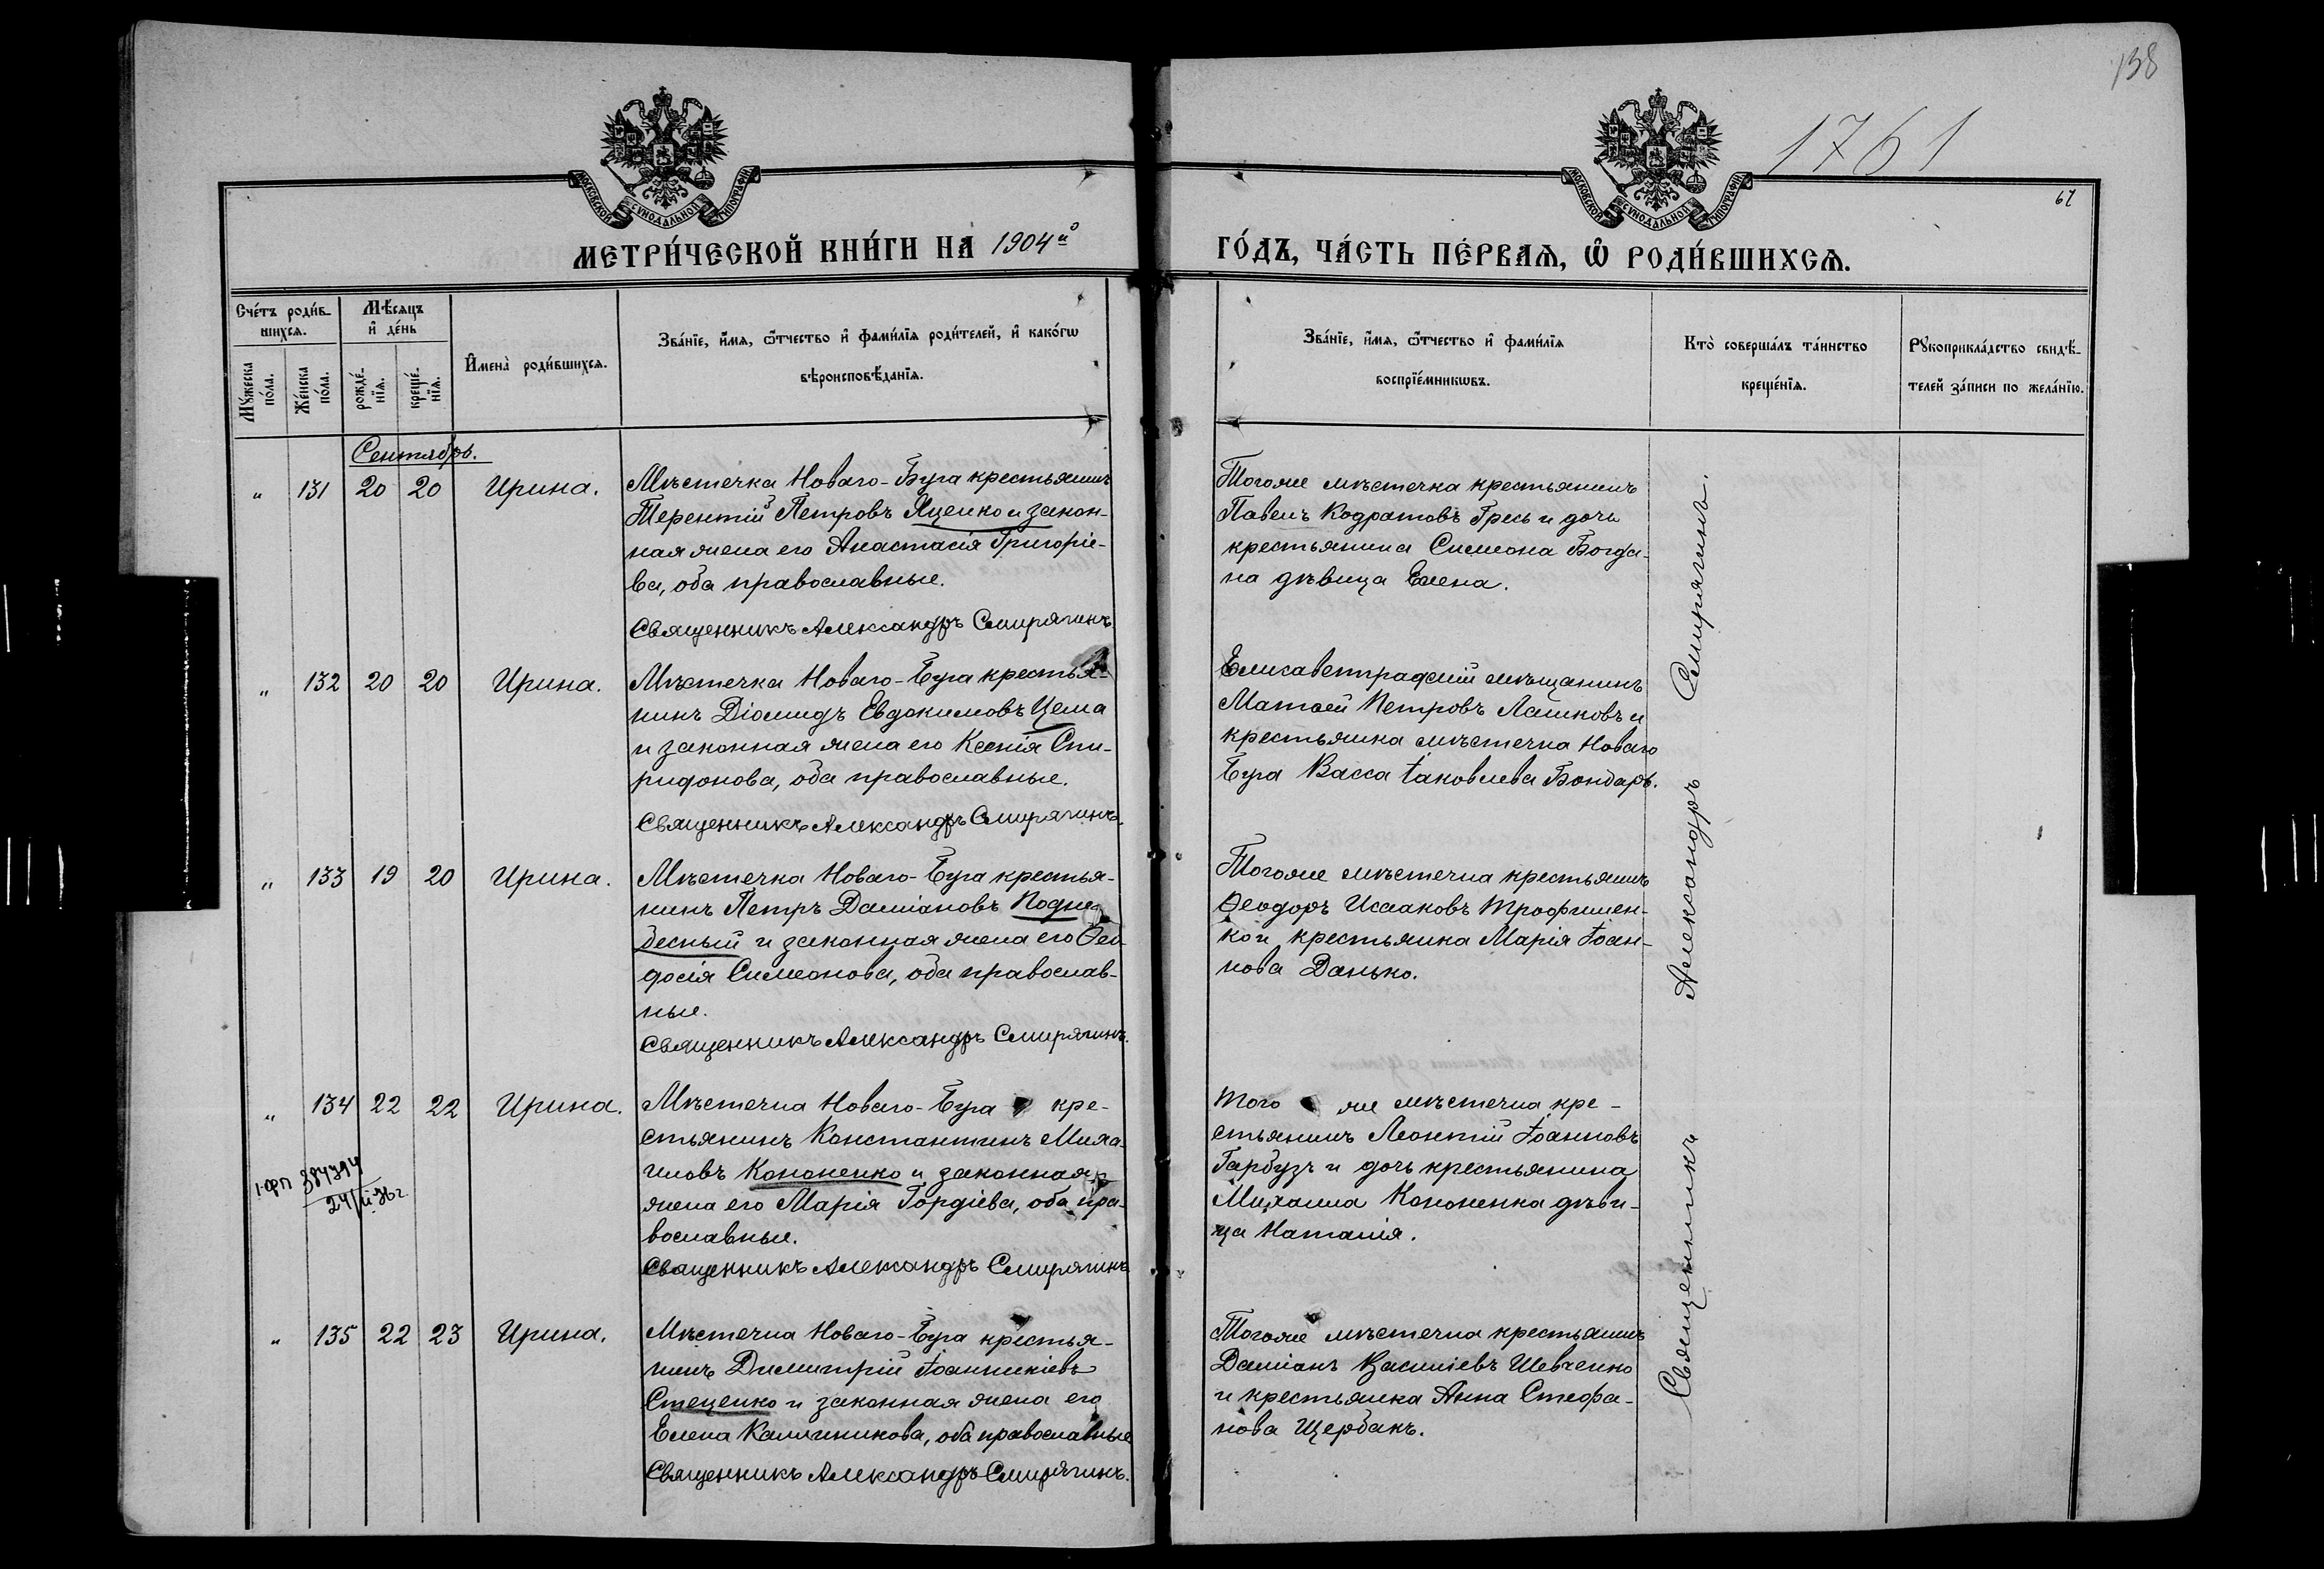 138
1761
67
МОСКОВСКОЙ СѴНОДАЛЬНОЙ ТИПОГРАФІИ
МОСКОВСКОЙ СѴНОДАЛЬНОЙ ТИПОГРАФІИ
МЕТРИ́ЧЕСКОЙ КНИ́ГИ НА 1904й
ГО́ДЪ, ЧА́СТЬ ПЕ́РВАѦ, Ѡ҆ РОДИ́ВШИХСѦ.
Сче́тъ роди́в-
шихсѧ.
Мꙋ́жеска по́ла.
Же́нска по́ла.
Мѣ́сѧцъ
и҆ де́нь
рожде́-
нїѧ.
креще́-
нїѧ.
И҆мена̀ роди́вшихсѧ.
Зва́нїе, и҆́мѧ, ѻ҆́тчество и҆ фами́лїѧ роди́телей, и҆ како́гѡ
вѣроисповѣ́данїѧ.
Зва́нїе, и҆́мѧ, ѻ҆́тчество и҆ фами́лїѧ
воспрїе́мникѡвъ.
Кто̀ соверша́лъ та́инство
креще́нїѧ.
Рꙋкоприкла́дство свидѣ́-
телей за́писи по жела́нїю.
Сентябрь.
" 131 20 20 Ирина.
Мѣстечка Новаго-Буга крестьянинъ
Терентій Петровъ Яценко и закон-
ная жена его Анастасія Григоріе-
ва, оба православные.
Священникъ Александръ Смирягинъ.
Тогоже мѣстечка крестьянинъ
Павелъ Кодратовъ Гресь и дочь
крестьянина Симеона Богда-
на дѣвица Елена.
" 132 20 20 Ирина.
Мѣстечка Новаго-Буга крестья-
нинъ Діомидъ Евдокимовъ Цема
и законная жена его Ксенія Спи-
ридонова, оба православные.
Священникъ Александръ Смирягинъ.
Елисаветградскій мѣщанинъ
Матѳей Петровъ Лашковъ и
крестьянка мѣстечка Новаго
Буга Васса Іаковлева Бондарь.
" 133 19 20 Ирина.
Мѣстечка Новаго-Буга крестья-
нинъ Петръ Даміановъ Подне-
бесный и законная жена его Ѳео-
досія Симеонова, оба православ-
ные.
Священникъ Александръ Смирягинъ.
Тогоже мѣстечка крестьянинъ
Ѳеодоръ Исааковъ Трофимен-
ко и крестьянка Марія Іоан-
нова Данько.
" 134 22 22 Ирина.
Мѣстечка Новаго-Буга кре-
стьянинъ Константинъ Миха-
иловъ Кононенко и законная
жена его Марія Гордіева, оба пра-
вославные.
Священникъ Александръ Смирягинъ.
384394
Того же мѣстечка кре-
стьянинъ Леонтій Іоанновъ
Гарбузъ и дочь крестьянина
Михаила Кононенка дѣви-
ца Наталія.
" 135 22 23 Ирина.
Мѣстечка Новаго-Буга крестья-
нинъ Димитрій Іоанникіевъ
Стеценко и законная жена его
Елена Каллиникова, оба православные
Священникъ Александръ Смирягинъ.
Тогоже мѣстечка крестьянинъ
Даміанъ Василіевъ Шевченко
и крестьянка Анна Стефа-
нова Щербакъ.
Священникъ Александръ Смирягинъ.